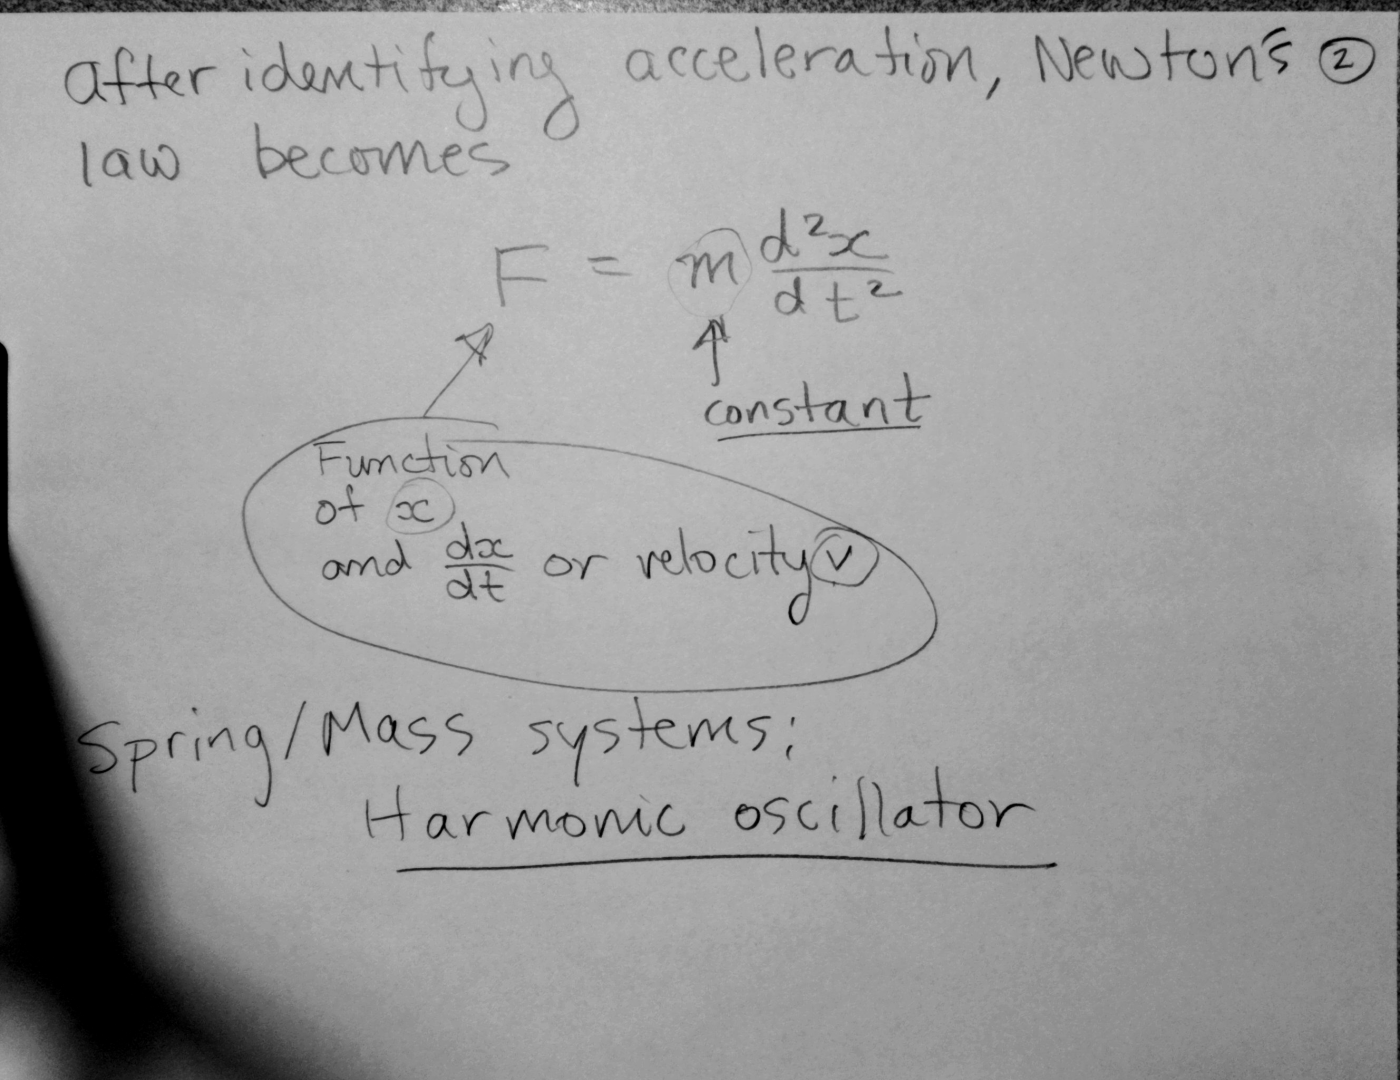 After identifying acceleration, Newton's ②
law becomes
F = m d²x/dt²
constant
Function
of x
and dx/dt or velocity v
Spring/Mass systems:
Harmonic oscillator